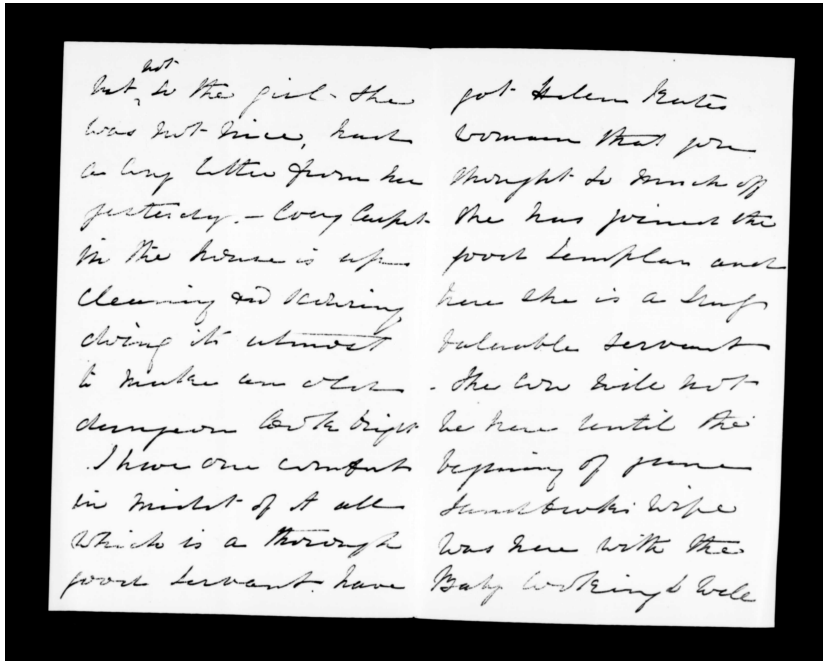 but not to the girl - she
was not nice, had
a long letter from her
yesterday. - Every Carpet
in the house is up
cleaning and scouring
doing its utmost
to make an old
dungeon look bright
. I have one comfort
in midst of it all
which is a thorough
good servant. have
got Helen
woman that you
thought so much of
she has joined the
good Templars and
here she is a
valuable servant
- The Cow will not
be here until the
beginning of June
wife
was here with the
Baby looking so well